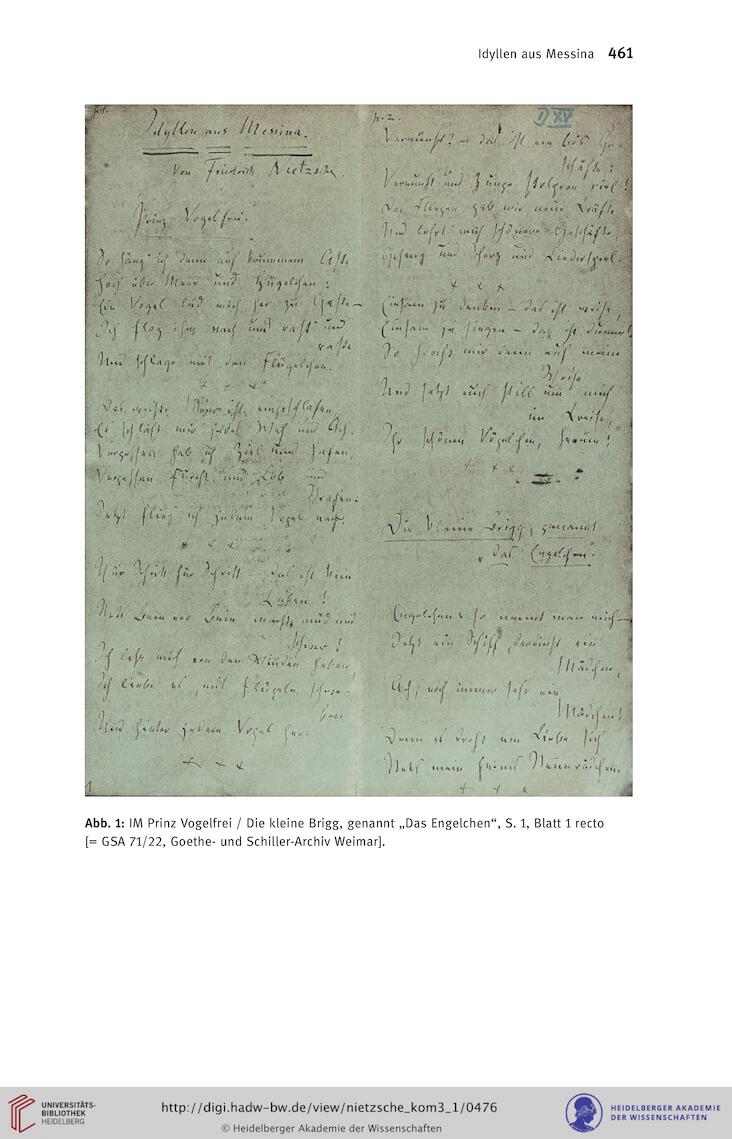 Idyllen aus Messina 461
Idyllen aus Messina.
Von Friedrich Nietzsche.
Prinz Vogelfrei.
So häng' ich denn auf krummem Aste
Hoch über Meer und Hügelchen:
Ein Vogel lud mich her zu Gaste —
Ich flog ihm nach und rast' und
raste
Und schlage mit den Flügelchen.
+ + +
Das weiße Meer ist eingeschlafen,
Es schläft mir jedes Weh und Ach.
Vergessen hab' ich Ziel und Hafen,
Vergessen Furcht und Lob und
Strafen:
Jetzt flieg ich jedem Vogel nach.
+ + +
Nur Schritt für Schritt — das ist kein
Leben!
Stets Bein vor Bein macht müd und
schwer!
Ich laß mich von den Winden heben,
Ich liebe es, mit Flügeln schwe-
ben
Und hinter jedem Vogel her.
+ + +
1
p. 2.
D XV
Vernunft? — das ist ein bös Ge-
schäfte:
Vernunft und Zunge stolpern viel!
Das Fliegen gab mir neue Kräfte
Und lehrt' mich schönere Geschäfte,
Gesang und Scherz und Liederspiel.
+ + +
Einsam zu denken — das ist weise,
Einsam zu singen — das ist dumm!
So horcht mir denn auf meine
Weise
Und setzt euch still um mich
im Kreise,
Ihr schönen Vögelchen, herum!
+ + +
Die kleine Brigg, genannt
„das Engelchen".
Engelchen: so nennt man mich —
Jetzt ein Schiff, dereinst ein
Mädchen,
Ach, noch immer sehr ein
Mädchen!
Denn es dreht um Liebe sich
Stets mein feines Steuerrädchen.
+ + +
Abb. 1: IM Prinz Vogelfrei / Die kleine Brigg, genannt „Das Engelchen“, S. 1, Blatt 1 recto
[= GSA 71/22, Goethe- und Schiller-Archiv Weimar].
UNIVERSITÄTS-
BIBLIOTHEK
HEIDELBERG
http://digi.hadw-bw.de/view/nietzsche_kom3_1/0476
© Heidelberger Akademie der Wissenschaften
HEIDELBERGER AKADEMIE
DER WISSENSCHAFTEN